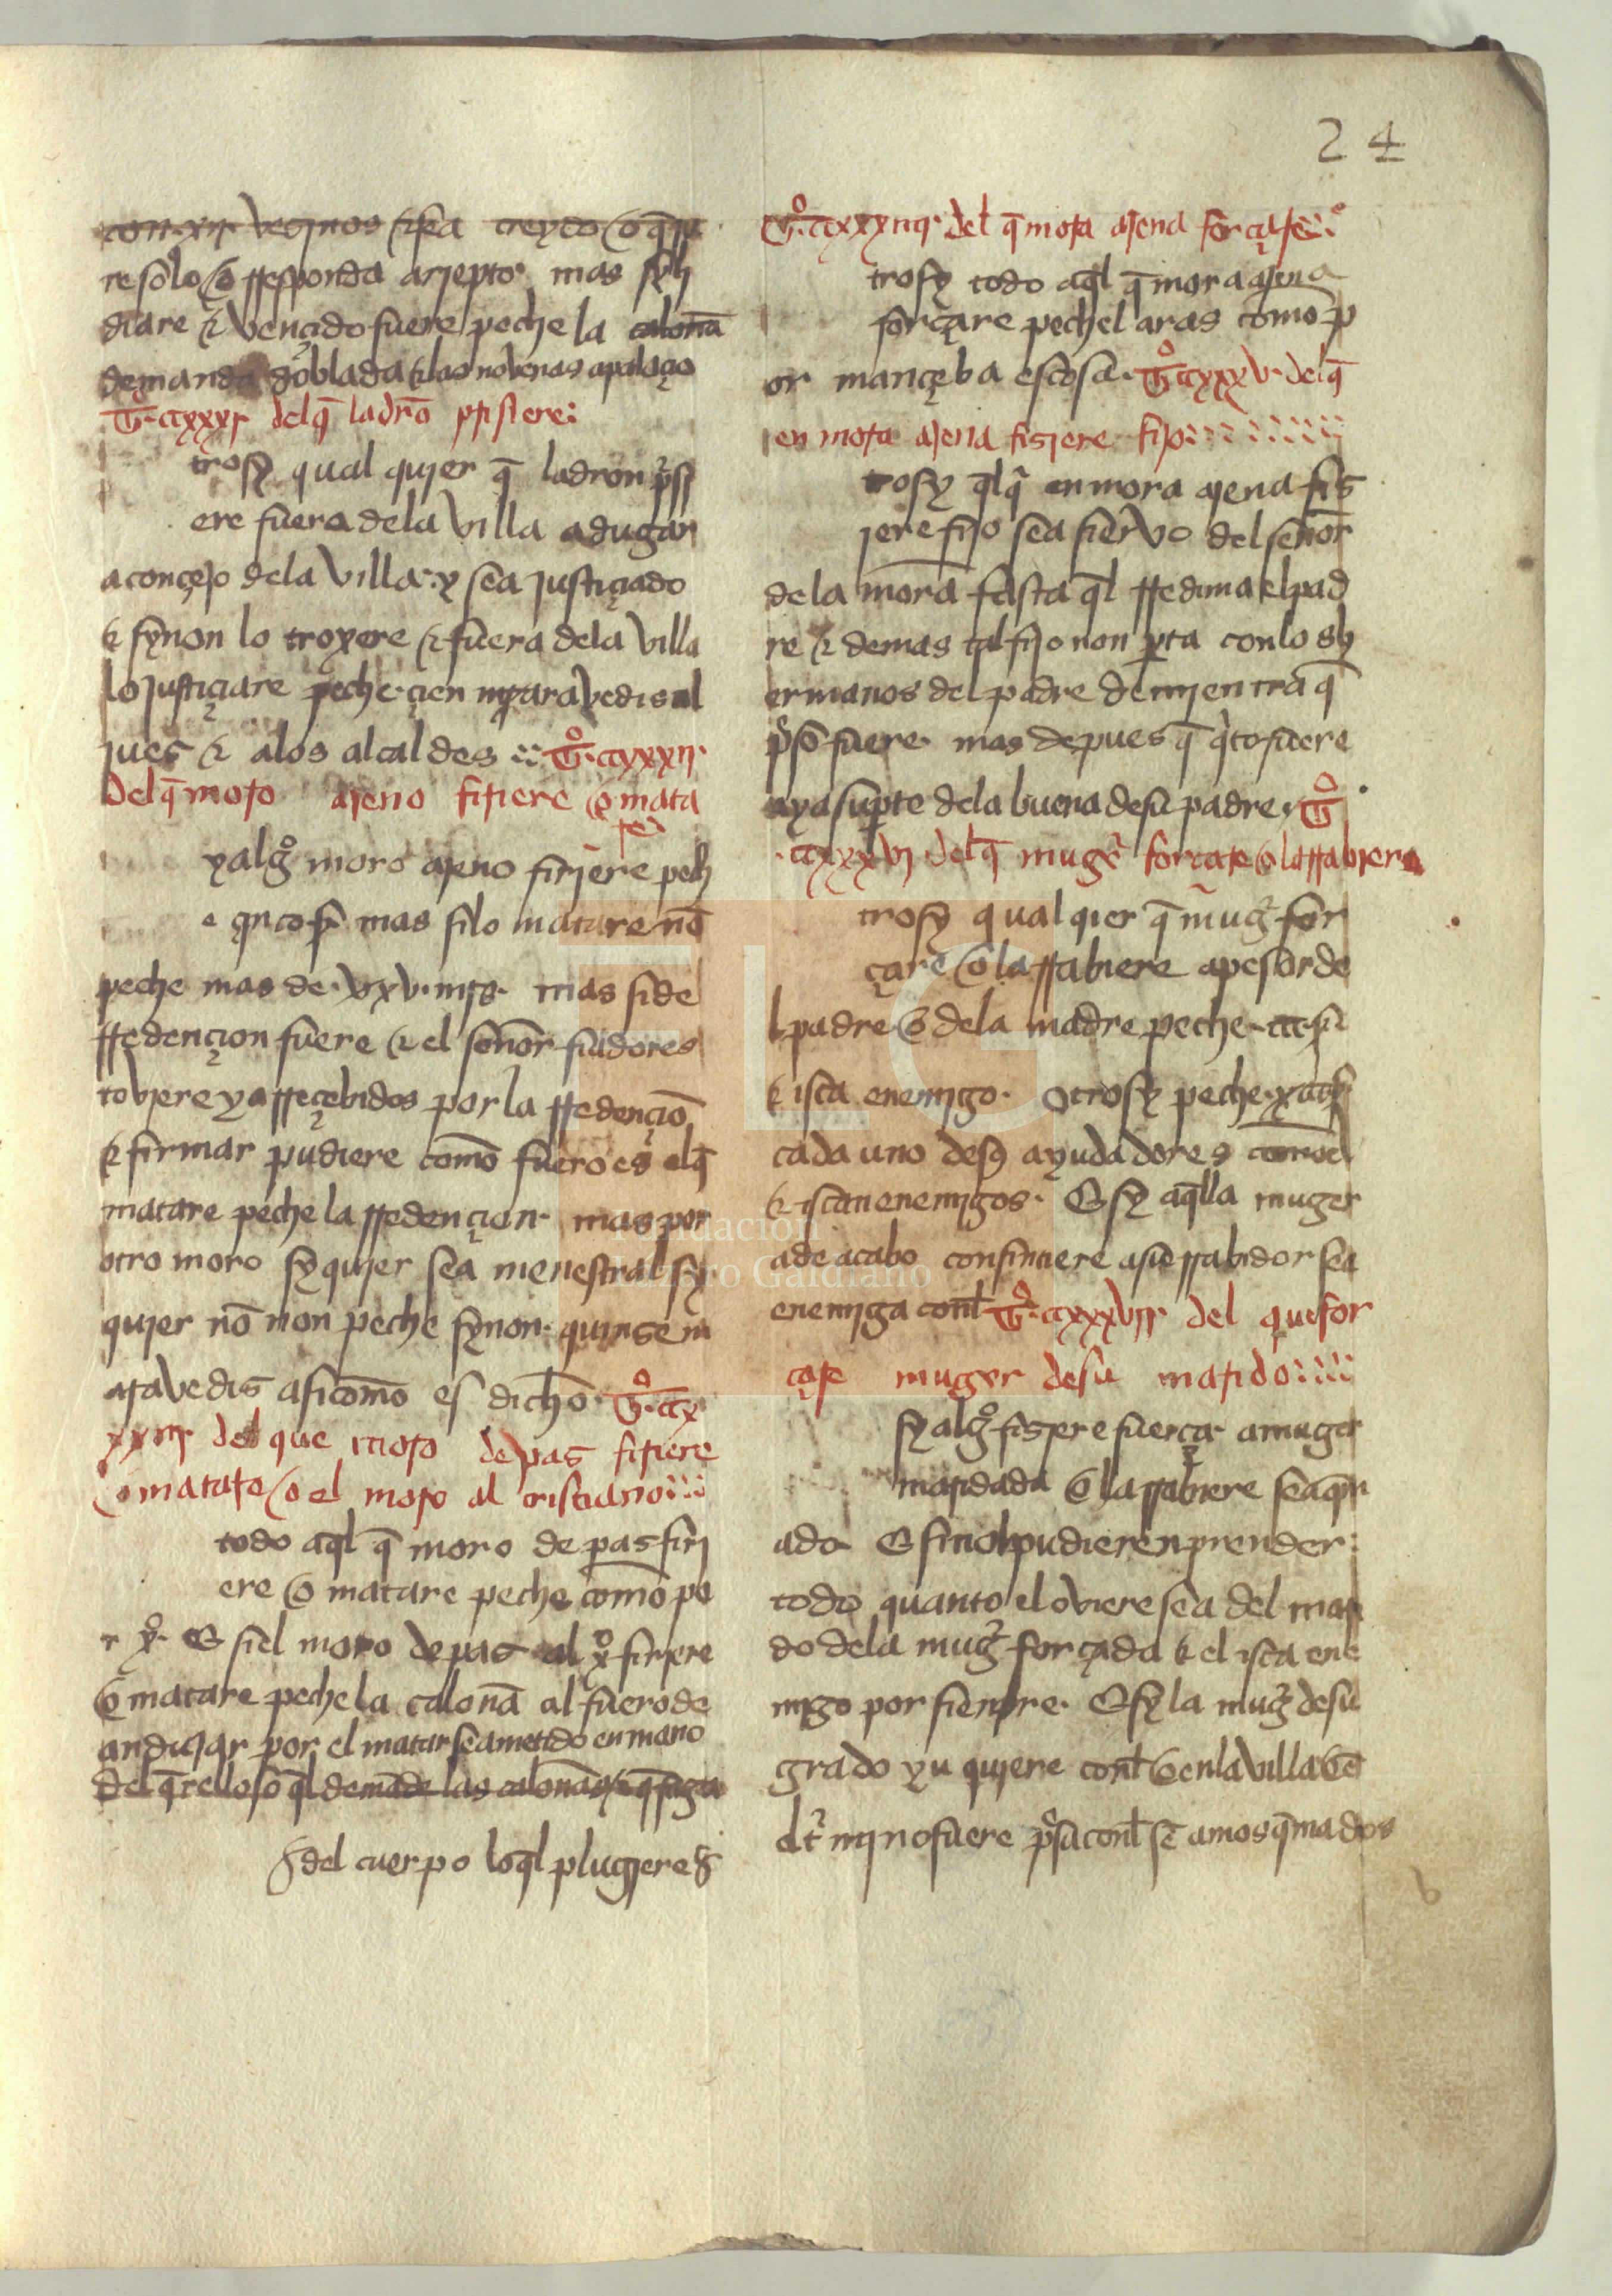 24
con xij veçinos & sea creydo o q̃ ju
re solo o rresponda a rriepto mas sy li
diare & vençido fuere peche la calonã
demanda doblada & las novenas a palaçio
T. ccxxxj del q̃ ladrõ prisiere
trosy qual quier q̃ ladron prisi
ere fuera dela villa adugan
a conçejo dela villa y sea justiçiado
& sy non lo troxere & fuera dela villa
lo justiçiare peche çien maravedis al
jues & alos alcaldes Tº ccxxxij
del q̃ moro ajeno firiere o mata
re
y algº moro ajeno firiere pech
e qnco sƥ mas si lo matare nõ
peche mas de xxv mrs mas si de
rredençion fuere & el señor fiadores
toviere ya rreçebidos por la rredençiõ
& firmar pudiere como fuero es el q̃
matare peche la rredençion mas por
otro moro sy quier sea menestral sy
quier nõ non peche synon quinse m
aravedis asi como es dicho Tº ccx
xxiij del que moro de pas firiere
o matare o el moro al cristiano
todo aq̃l q̃ moro de pas firi
ere o matare peche como po
r xº E si el moro de pas al xº firiere
o matare peche la calonã al fuero de
andujar por el matar sea metido en mano
del q̃relloso q̃l demãde las calonãs & q̃ faga
del cuerpo lo q̃l plugiere
Tº ccxxxiiij del q̃ mora ajena forçare
trosy todo aq̃l q̃ mora ajena
forçare pechel aras como p
or mançeba escosa Tº ccxxxv del q̃
en mora ajena fisiere fijo
trosy q̃lq̃ en mora ajena fis
iere fijo sea siervo del señor
de la mora fasta q̃l rredima el pad
re & demas tal fijo non pta con los h
ermanos del padre demientra q̃
pso fuere mas depues q̃ qto fuere
aya su pte dela buena de su padre Tº
ccxxxvj del q̃ mugr forçare o la rrabiere
trosy qualqier q̃ mugr for
çare o la rrabiere a pesar de
l padre o dela madre peche ccc su
& isca enemigo Otrosy peche
cada uno de sus ayudadores
& iscan enemigos E sy aq̃lla muger
ade acabo consintiere a su rrabidor sea
enemiga conl Tº ccxxxvij del que for
çare muger de su marido
sy algº fisiere fuerça a muger
maridada o la rrabiere sea q̃m
ado E si nol pudieren prender
todo quanto el oviere sea del mari
do dela mugr forçada & el isca ene
migo por sienpre E sy la mugr de su
grado yu quiere conl o en la villa o ẽ
el tr̃mino fuere psa conl sẽ amos q̃mados
FLG
Fundación
Lázaro Galdiano